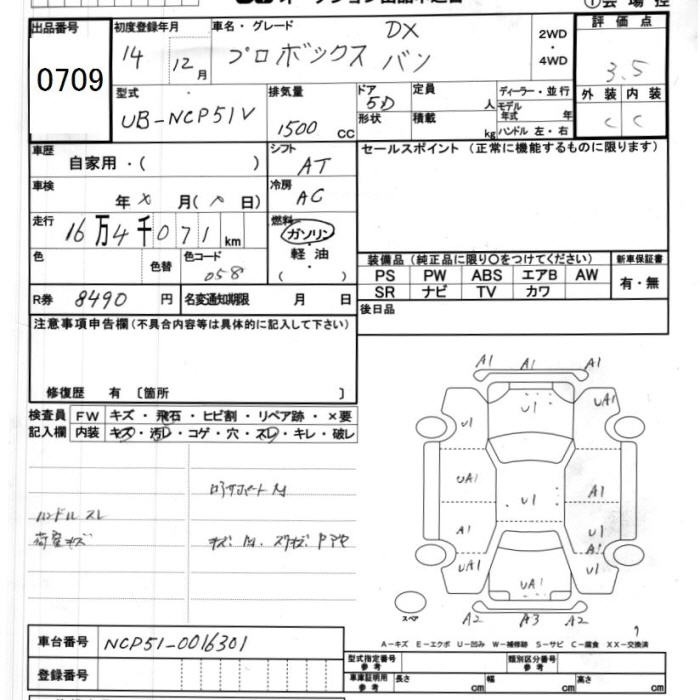 出品番号 0709
初度登録年月 14 12月
車名・グレード DX
プロボックス バン
2WD・4WD
評価点 3.5
外装 内装
C C
型式 UB-NCP51V
排気量 1500 CC
ドア 5D
形状
定員 人
積載 kg
ディーラー・並行
モデル年式 年
ハンドル 左・右
車歴 自家用・( )
シフト AT
セールスポイント (正常に機能するものに限ります)
車検 年 月( 日)
冷房 AC
走行 16万4千071km
燃料 ガソリン・軽油・( )
色 色替 色コード 058
装備品 (純正品に限り○をつけてください)
新車保証書
PS PW ABS エアB AW
有・無
SR ナビ TV カワ
R券 8490 円
名変通知期限 月 日
後日品
注意事項申告欄(不具合内容等は具体的に記入して下さい)
修復歴 有 〔箇所 〕
検査員記入欄
FW キズ・飛石・ヒビ割・リペア跡・×要
内装 キズ・汚レ・コゲ・穴・スレ・キレ・破レ
ハンドル スレ
荷室キズ
A1 A1 A1
U1 UA1
U1
UA1 A1
U1
A1 U1
A1
UA1 U1
UA1
A2 A3 A2
スペア
A-キズ E-エクボ U-凹み W-補修跡 S-サビ C-腐食 XX-交換済
車台番号 NCP51-0016301
登録番号
型式指定番号 参考
類別区分番号 参考
車庫証明用 参考
長さ cm 幅 cm 高さ cm